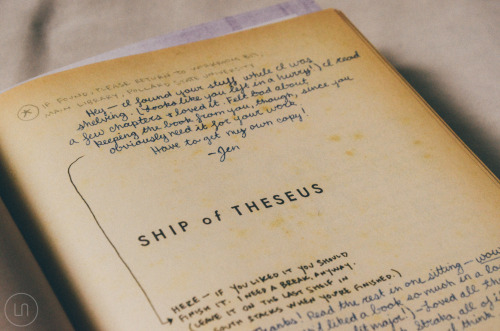 IF FOUND, PLEASE RETURN TO WORKROOM B19,
MAIN LIBRARY, POLLARD STATE UNIVERSITY
Hey — I found your stuff while I was
shelving. (Looks like you left in a hurry!) I read
a few chapters + loved it. Felt bad about
keeping the book from you, though, since you
obviously need it for your work.
Have to get my own copy!
—Jen
SHIP of THESEUS
HERE — IF YOU LIKED IT YOU SHOULD
FINISH IT. I NEED A BREAK, ANYWAY.
(LEAVE IT ON THE LAST SHELF IN
SOUTH STACKS WHEN YOU'RE FINISHED.)
Thanks! Read the rest in one sitting — wou
liked a book so much in a lo
major!) — Loved all th
books, all of
think